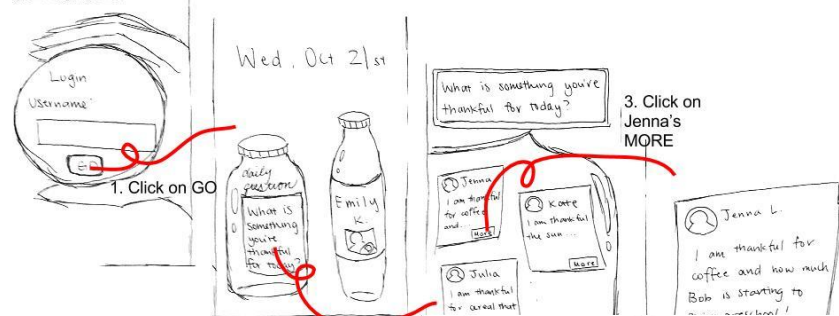 Login
Username
GO
1. Click on GO
Wed. Oct 21st
daily
question
What is
something
you're
thankful
for today?
Emily
K.
What is something you're
thankful for today?
Jenna
I am thankful
for coffee
and...
More
Kate
I am thankful
the sun...
More
Julia
I am thankful
for cereal that
3. Click on
Jenna's
MORE
Jenna L.
I am thankful for
coffee and how much
Bob is starting to
preschool!